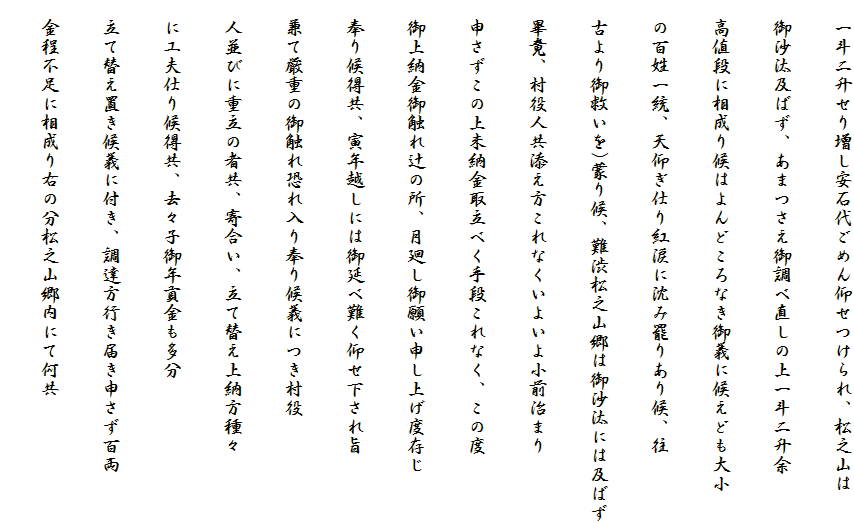 一斗二升せり増し安石代ごめん仰せつけられ、松之山は
御沙汰及ばず、あまつさえ御調べ直しの上一斗二升余
高値段に相成り候はよんどころなき御義に候えども大小
の百姓一統、天仰ぎ仕り紅涙に沈み罷りあり候、往
古より御救いを）蒙り候、難渋松之山郷は御沙汰には及ばず
畢竟、村役人共添え方これなくいよいよ小前治まり
申さずこの上未納金取立べく手段これなく、この度
御上納金御触れ辻の所、月廻し御願い申し上げ度存じ
奉り候得共、寅年越しには御延べ難く仰せ下され旨
兼て厳重の御触れ恐れ入り奉り候義につき村役
人並びに重立の者共、寄合い、立て替え上納方種々
に工夫仕り候得共、去々子御年貢金も多分
立て替え置き候義に付き、調達方行き届き申さず百両
金程不足に相成り右の分松之山郷内にて何共